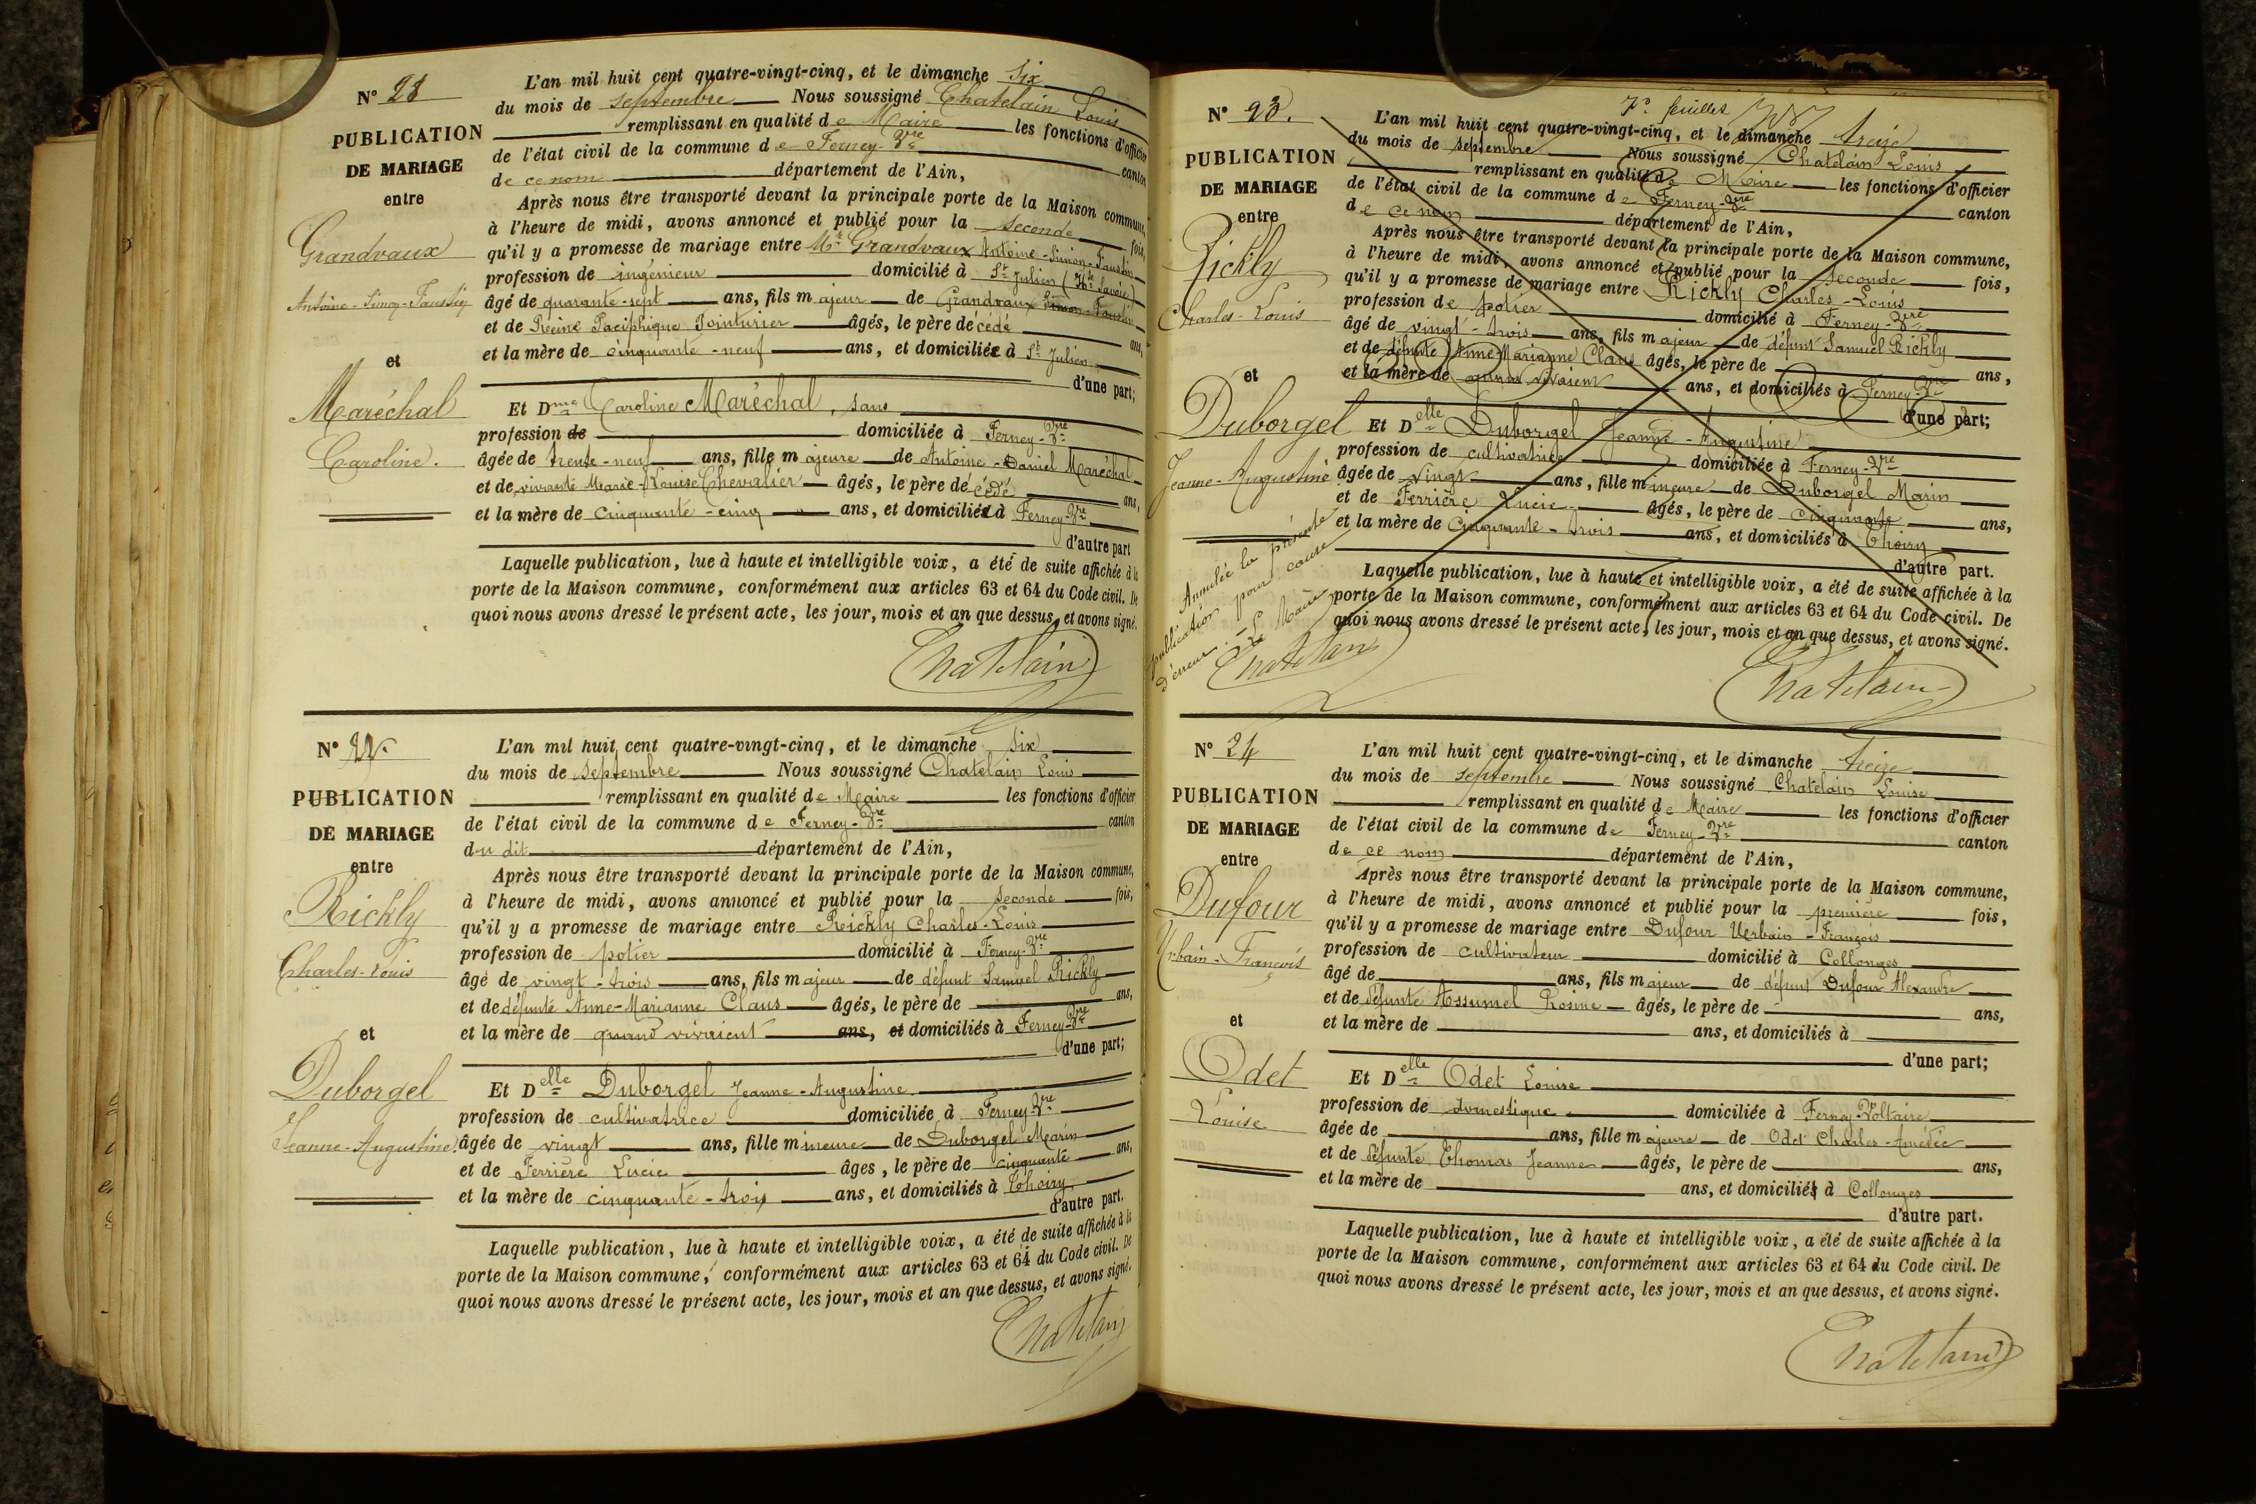 N° 21
PUBLICATION
DE MARIAGE
entre
Grandvaux
Antoine-Simon-Faustin
et
Maréchal
Caroline.
L'an mil huit cent quatre-vingt-cinq, et le dimanche six
du mois de septembre Nous soussigné Chatelain Louis
remplissant en qualité de Maire les fonctions d'officier
de l'état civil de la commune de Ferney-Vre canton
de ce nom département de l'Ain,
Après nous être transporté devant la principale porte de la Maison commune,
à l'heure de midi, avons annoncé et publié pour la seconde fois,
qu'il y a promesse de mariage entre Mr Grandvaux Antoine-Simon-Faustin
profession de ingénieur domicilié à St Julien (Hte Savoie)
âgé de quarante-sept ans, fils majeur de Grandvaux Simon-Faustin
et de Reine Paciphique Jointurier âgés, le père décédé ans,
et la mère de cinquante-neuf ans, et domiciliée à St Julien
d'une part;
Et Dme Caroline Maréchal, sans
profession de domiciliée à Ferney-Vre
âgée de trente-neuf ans, fille majeure de Antoine-Daniel Maréchal
et de vivante Marie-Louise Chevalier âgés, le père décédé ans,
et la mère de cinquante-cinq ans, et domiciliée à Ferney Vre
d'autre part
Laquelle publication, lue à haute et intelligible voix, a été de suite affichée à la
porte de la Maison commune, conformément aux articles 63 et 64 du Code civil. De
quoi nous avons dressé le présent acte, les jour, mois et an que dessus, et avons signé.
Chatelain
N° 22.
PUBLICATION
DE MARIAGE
entre
Rickly
Charles-Louis
et
Duborgel
Jeanne-Augustine.
L'an mil huit cent quatre-vingt-cinq, et le dimanche six
du mois de septembre Nous soussigné Chatelain Louis
remplissant en qualité de Maire les fonctions d'officier
de l'état civil de la commune de Ferney-Vre canton
du dit département de l'Ain,
Après nous être transporté devant la principale porte de la Maison commune,
à l'heure de midi, avons annoncé et publié pour la seconde fois,
qu'il y a promesse de mariage entre Rickly Charles-Louis
profession de potier domicilié à Ferney-Vre
âgé de vingt-trois ans, fils majeur de défunt Samuel Rickly
et de défunte Anne-Marianne Claus âgés, le père de ans,
et la mère de quand vivaient ans, et domiciliés à Ferney-Vre
d'une part;
Et Delle Duborgel Jeanne-Augustine
profession de cultivatrice domiciliée à Ferney-Vre
âgée de vingt ans, fille mineure de Duborgel Marin
et de Ferrière Lucie âgés, le père de cinquante ans,
et la mère de cinquante-trois ans, et domiciliés à Thoiry
d'autre part.
Laquelle publication, lue à haute et intelligible voix, a été de suite affichée à la
porte de la Maison commune, conformément aux articles 63 et 64 du Code civil. De
quoi nous avons dressé le présent acte, les jour, mois et an que dessus, et avons signé.
Chatelain
7e feuillet
N° 23.
PUBLICATION
DE MARIAGE
entre
Rickly
Charles-Louis
et
Duborgel
Jeanne-Augustine
Annulée la présente
publication pour cause
d'erreur. Le Maire
Chatelain
L'an mil huit cent quatre-vingt-cinq, et le dimanche treize
du mois de septembre Nous soussigné Chatelain Louis
remplissant en qualité de Maire les fonctions d'officier
de l'état civil de la commune de Ferney-Vre canton
de ce nom département de l'Ain,
Après nous être transporté devant la principale porte de la Maison commune,
à l'heure de midi, avons annoncé et publié pour la seconde fois,
qu'il y a promesse de mariage entre Rickly Charles-Louis
profession de potier domicilié à Ferney-Vre
âgé de vingt-trois ans, fils majeur de défunt Samuel Rickly
et de défunte Anne Marianne Claus âgés, le père de ans,
et la mère de quand vivaient ans, et domiciliés à Ferney-Vre
d'une part;
Et Delle Duborgel Jeanne-Augustine
profession de cultivatrice domiciliée à Ferney-Vre
âgée de vingt ans, fille mineure de Duborgel Marin
et de Ferrière Lucie âgés, le père de cinquante ans,
et la mère de cinquante-trois ans, et domiciliés à Thoiry
d'autre part.
Laquelle publication, lue à haute et intelligible voix, a été de suite affichée à la
porte de la Maison commune, conformément aux articles 63 et 64 du Code civil. De
quoi nous avons dressé le présent acte, les jour, mois et an que dessus, et avons signé.
Chatelain
N° 24
PUBLICATION
DE MARIAGE
entre
Dufour
Urbain-François
et
Odet
Louise
L'an mil huit cent quatre-vingt-cinq, et le dimanche treize
du mois de septembre Nous soussigné Chatelain Louise
remplissant en qualité de Maire les fonctions d'officier
de l'état civil de la commune de Ferney-Vre canton
de ce nom département de l'Ain,
Après nous être transporté devant la principale porte de la Maison commune,
à l'heure de midi, avons annoncé et publié pour la première fois,
qu'il y a promesse de mariage entre Dufour Urbain-François
profession de cultivateur domicilié à Collonges
âgé de ans, fils majeur de défunt Dufour Alexandre
et de défunte Assumel Rosine âgés, le père de ans,
et la mère de ans, et domiciliés à
d'une part;
Et Delle Odet Louise
profession de domestique domiciliée à Ferney-Voltaire
âgée de ans, fille majeure de Odet Charles-Amédée
et de défunte Thomas Jeanne âgés, le père de ans,
et la mère de ans, et domiciliés à Collonges
d'autre part.
Laquelle publication, lue à haute et intelligible voix, a été de suite affichée à la
porte de la Maison commune, conformément aux articles 63 et 64 du Code civil. De
quoi nous avons dressé le présent acte, les jour, mois et an que dessus, et avons signé.
Chatelain